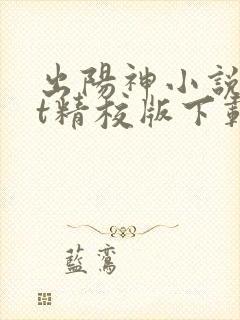 出陽神小說
t精校版下載
藍鸞